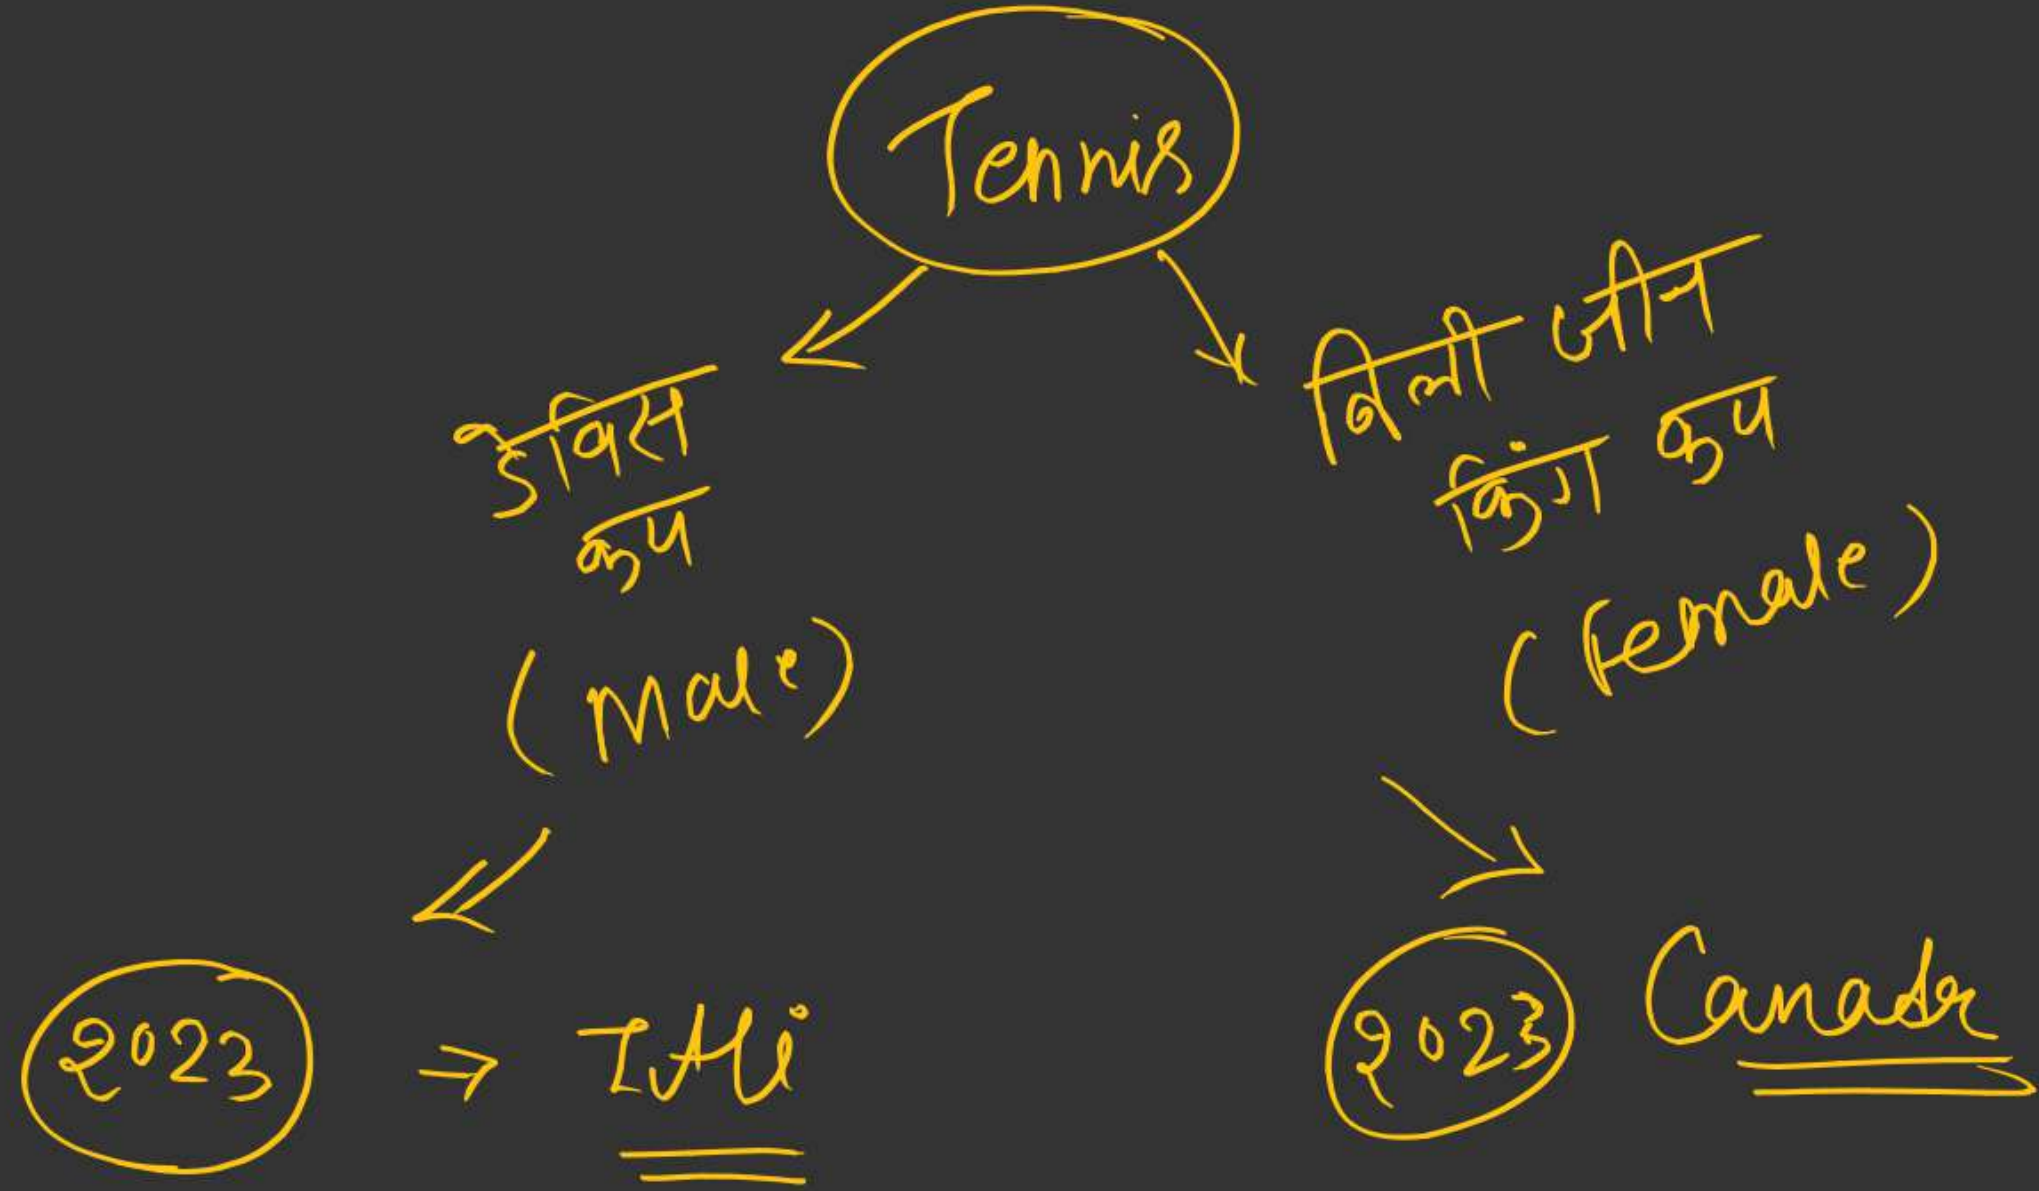 Tennis
डेविस
कप
(Male)
2023 ⇒ Itli
बिली जीन
किंग कप
(Female)
2023 Canada